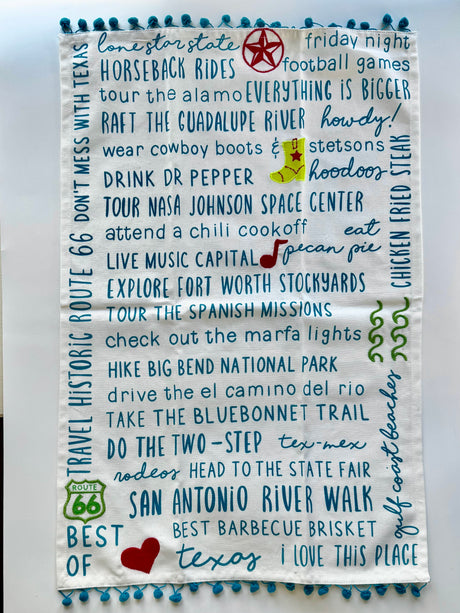 lone star state friday night
HORSEBACK RIDES football games
tour the alamo EVERYTHING IS BIGGER
RAFT THE GUADALUPE RIVER howdy!
wear cowboy boots & stetsons
DRINK DR PEPPER hoodoos
TOUR NASA JOHNSON SPACE CENTER
attend a chili cookoff eat
LIVE MUSIC CAPITAL pecan pie
EXPLORE FORT WORTH STOCKYARDS
TOUR THE SPANISH MISSIONS
check out the marfa lights
HIKE BIG BEND NATIONAL PARK
drive the el camino del rio
TAKE THE BLUEBONNET TRAIL
DO THE TWO-STEP tex-mex
rodeos HEAD TO THE STATE FAIR
SAN ANTONIO RIVER WALK
BEST BEST BARBECUE BRISKET
OF texas i LOVE THIS PLACE
DON'T MESS WITH TEXAS
TRAVEL HISTORIC ROUTE 66
ROUTE
66
CHICKEN FRIED STEAK
gulf-coast beaches